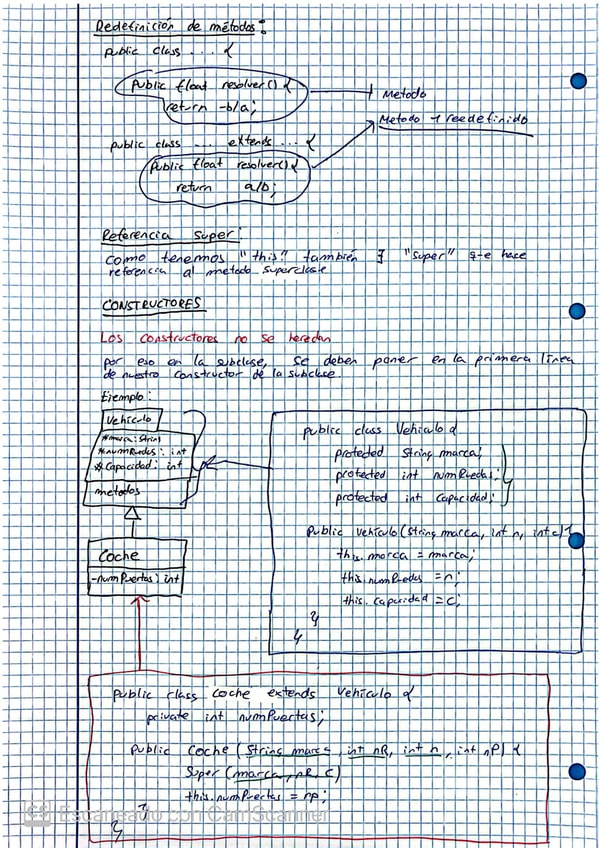 Redefinición de métodos:
public class . . . {
public float resolver() {
return -b/a;
Metodo
Metodo reedefinido
public class ... extends ... {
public float resolver() {
return a/b;
Referencia super:
como tenemos "this" también ∃ "super" que hace
referencia al metodo superclase
CONSTRUCTORES
Los constructores no se heredan
por eso en la subclase, se deben poner en la primera línea
de nuestro constructor de la subclase.
Ejemplo:
Vehiculo
#marca: String
#numRuedas: int
#Capacidad: int
metodos
Coche
-numPuertas: int
public class Vehiculo {
protected String marca;
protected int numRuedas;
protected int capacidad;
public Vehiculo (String marca, int n, int c) {
this.marca = marca;
this.numRuedas = n;
this.capacidad = c;
}
}
public class Coche extends Vehiculo {
private int numPuertas;
public Coche (String marca, int nR, int n, int nP) {
Super (marca, nR, c)
this.numPuertas = np;
}
}
CS Escaneado con CamScanner